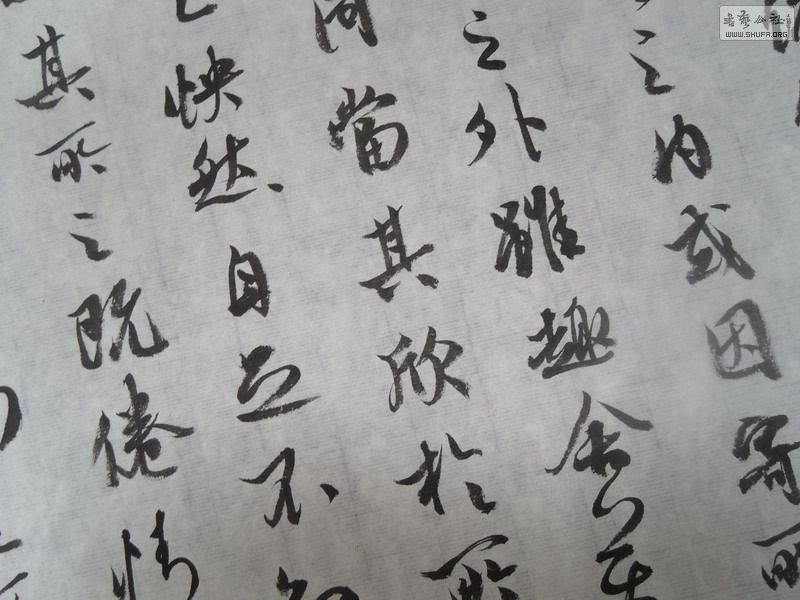 之內或因寄所
之外雖趣舍
同當其欣於所
怏然自足不知
其所之既倦情
書藝公社
WWW.SHUFA.ORG